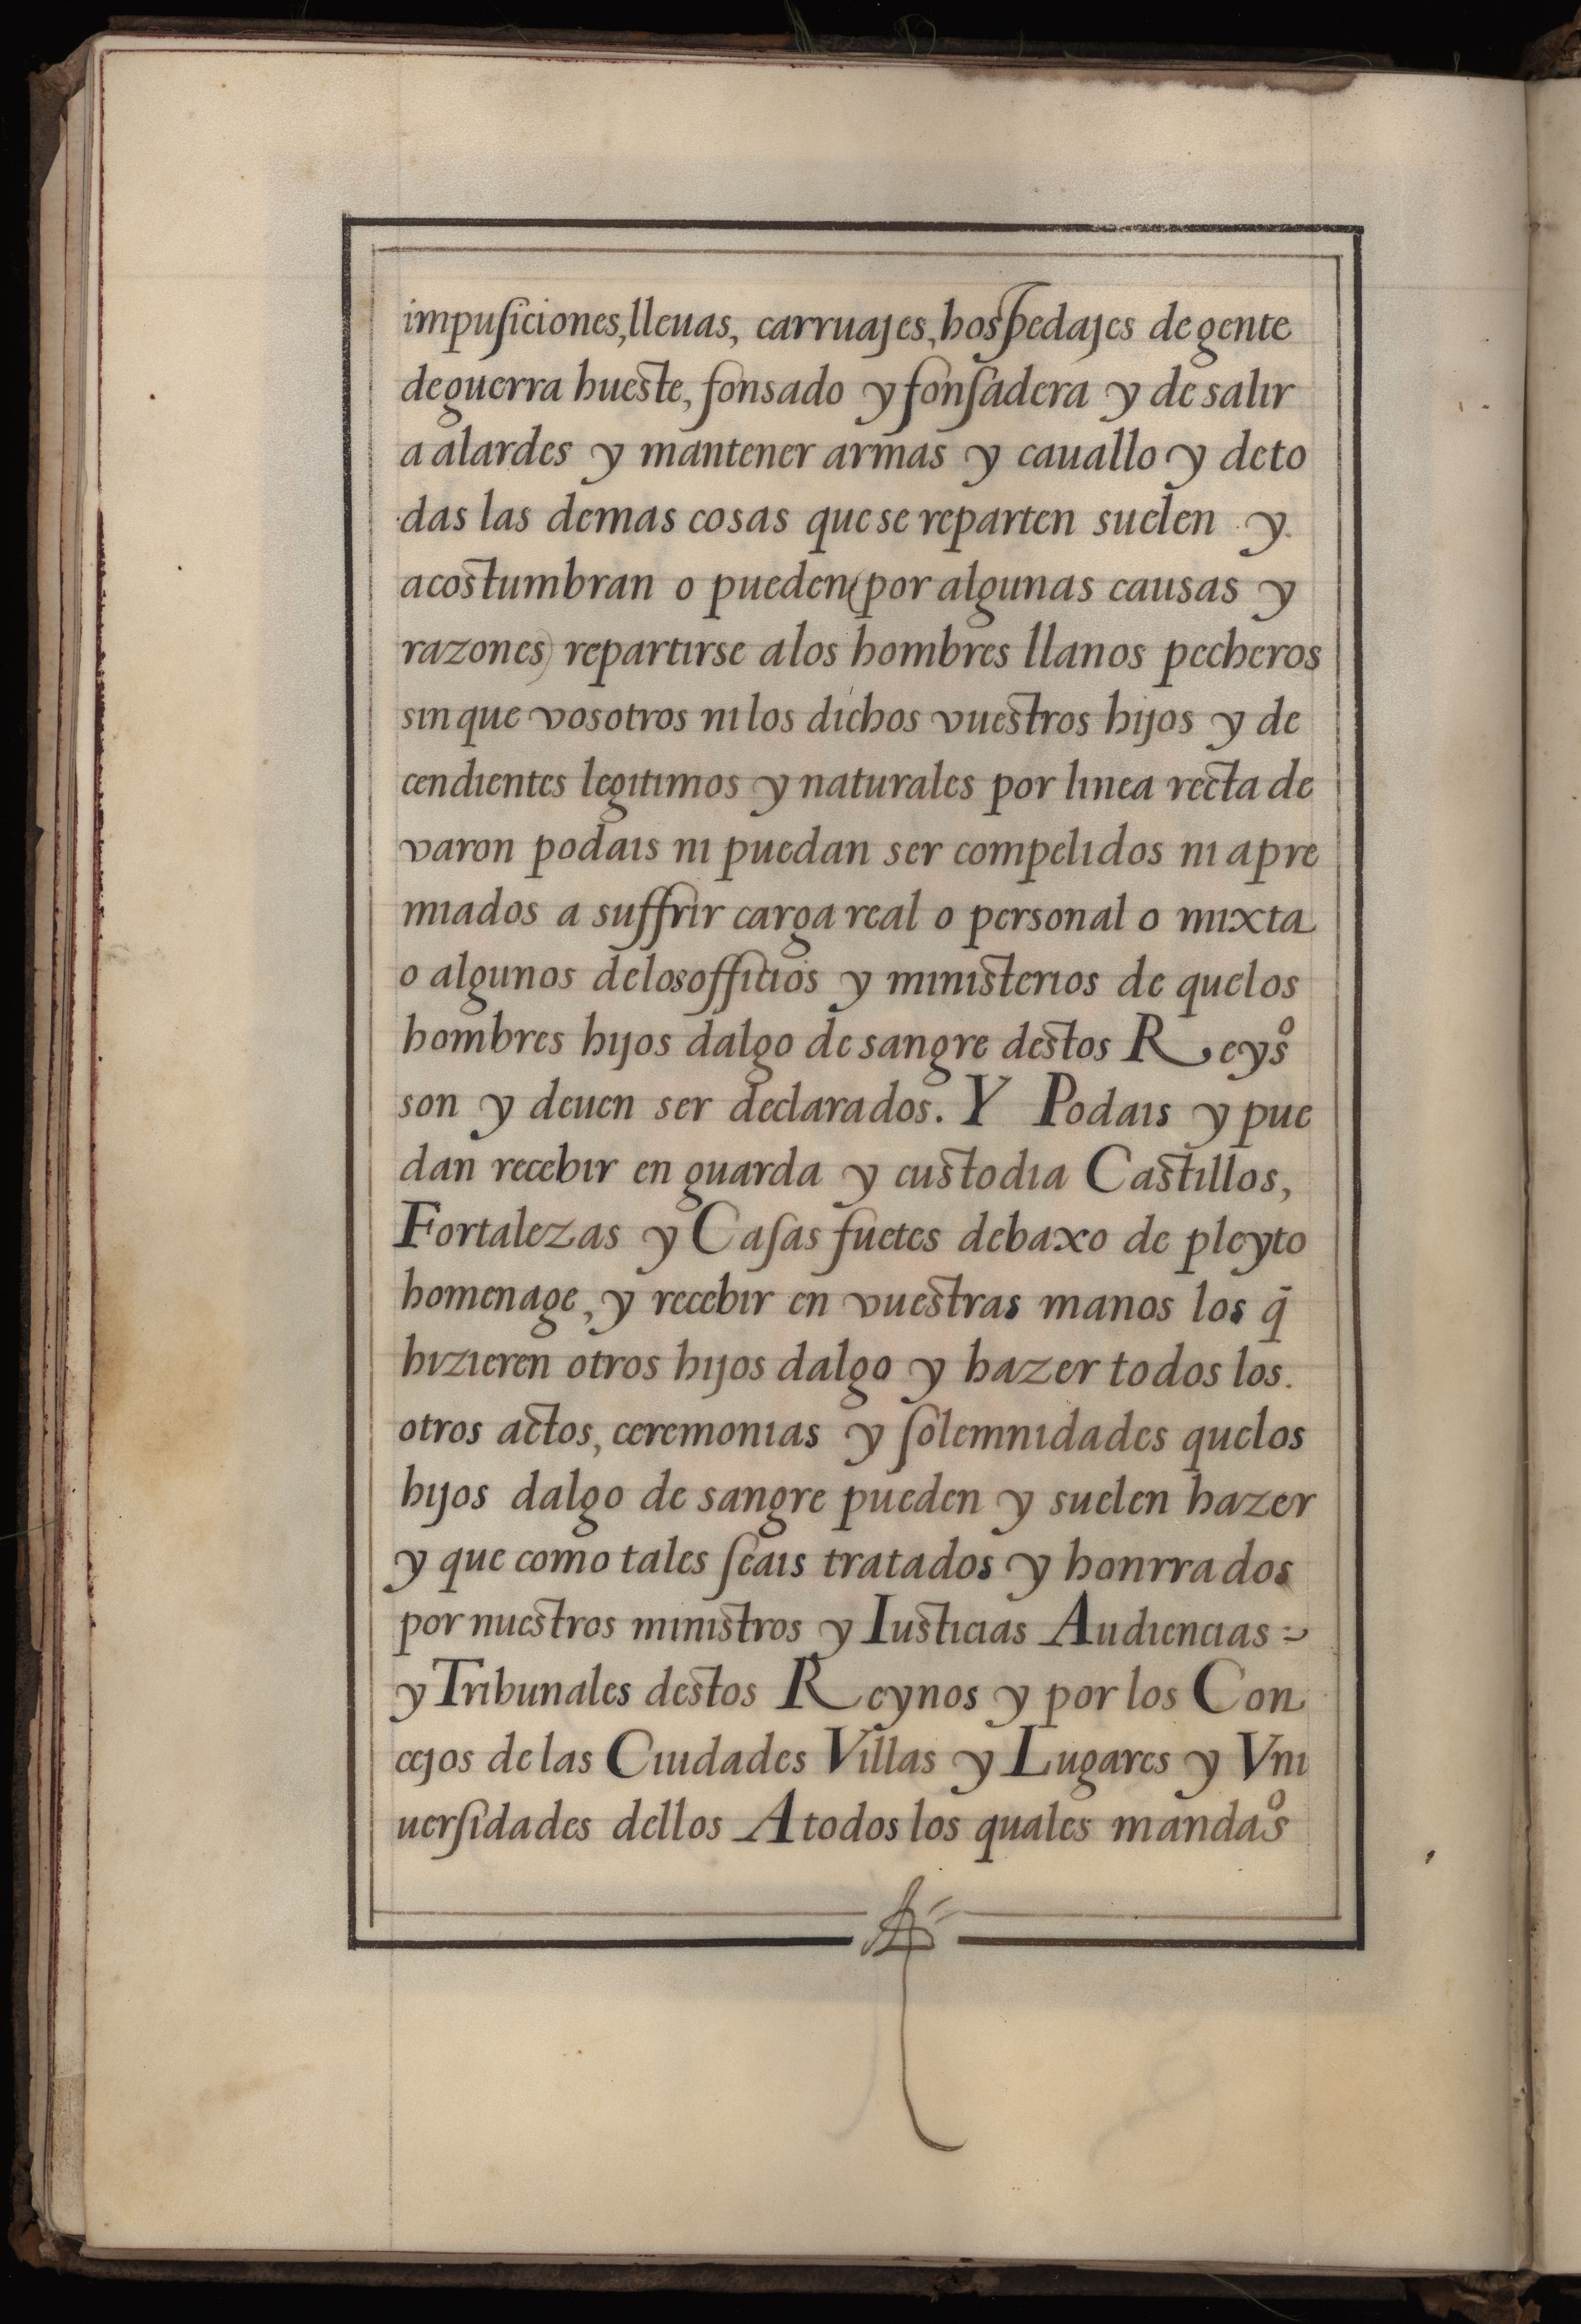 impuſiciones, lleuas, carruajes, hospedajes de gente
de guerra hueste, fonsado y fonſadera y de salir
a alardes y mantener armas y cauallo y de to
das las demas cosas que se reparten suelen y
acostumbran o pueden (por algunas causas y
razones) repartirse a los hombres llanos pecheros
sin que vosotros ni los dichos vuestros hijos y de
cendientes legitimos y naturales por linea recta de
varon podais ni puedan ser compelidos ni apre
miados a suffrir carga real o personal o mixta
o algunos de los officios y ministerios de que los
hombres hijos dalgo de sangre destos Reyºs
son y deuen ser declarados. Y Podais y pue
dan recebir en guarda y custodia Castillos,
Fortalezas y Caſas fuetes debaxo de pleyto
homenage, y recebir en vuestras manos los q̄
hizieren otros hijos dalgo y hazer todos los.
otros actos, ceremonias y ſolemnidades que los
hijos dalgo de sangre pueden y suelen hazer
y que como tales ſeais tratados y honrrados
por nuestros ministros y Iusticias Audiencias
y Tribunales destos Reynos y por los Con
cejos de las Ciudades Villas y Lugares y Vni
uerſidades dellos A todos los quales mandaºs